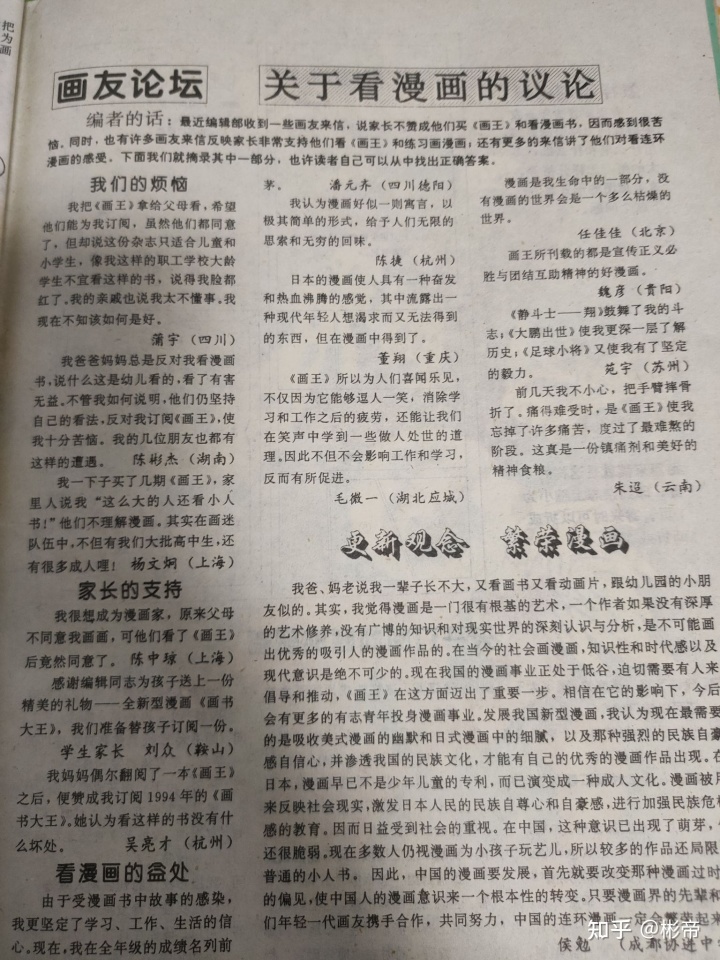 把
为
画
画友论坛
关于看漫画的议论
编者的话：最近编辑部收到一些画友来信，说家长不赞成他们买《画王》和看漫画书，因而感到很苦
恼。同时，也有许多画友来信反映家长非常支持他们看《画王》和练习画漫画；还有更多的来信讲了他们对看连环
漫画的感受。下面我们就摘录其中一部分，也许读者自己可以从中找出正确答案。
我们的烦恼
我把《画王》拿给父母看，希望
他们能为我订阅，虽然他们都同意
了，但却说这份杂志只适合儿童和
小学生，像我这样的职工学校大龄
学生不宜看这样的书，说得我脸都
红了。我的亲戚也说我太不懂事。我
现在不知该如何是好。
蒲宇（四川）
我爸爸妈妈总是反对我看漫画
书，说什么这是幼儿看的，看了有害
无益。不管我如何说明，他们仍坚持
自己的看法，反对我订阅《画王》，使
我十分苦恼。我的几位朋友也都有
这样的遭遇。 陈彬杰（湖南）
我一下子买了几期《画王》，家
里人说我“这么大的人还看小人
书！”他们不理解漫画。其实在画迷
队伍中，不但有我们大批高中生，还
有很多成人哩！ 杨文炯（上海）
家长的支持
我很想成为漫画家，原来父母
不同意我画画，可他们看了《画王》
后竟然同意了。 陈中琼（上海）
感谢编辑同志为孩子送上一份
精美的礼物——全新型漫画《画书
大王》，我们准备替孩子订阅一份。
学生家长 刘众（鞍山）
我妈妈偶尔翻阅了一本《画王》
之后，便赞成我订阅1994年的《画
书大王》。她认为看这样的书没有什
么坏处。 吴亮才（杭州）
看漫画的益处
由于受漫画书中故事的感染，
我更坚定了学习、工作、生活的信
心。现在，我在全年级的成绩名列前
茅。 潘元齐（四川德阳）
我认为漫画好似一则寓言，以
极其简单的形式，给予人们无限的
思索和无穷的回味。
陈捷（杭州）
日本的漫画使人具有一种奋发
和热血沸腾的感觉，其中流露出一
种现代年轻人想渴求而又无法得到
的东西，但在漫画中得到了。
董翔（重庆）
《画王》所以为人们喜闻乐见，
不仅因为它能够逗人一笑，消除学
习和工作之后的疲劳，还能让我们
在笑声中学到一些做人处世的道
理。因此不但不会影响工作和学习，
反而有所促进。
毛微一（湖北应城）
漫画是我生命中的一部分，没
有漫画的世界会是一个多么枯燥的
世界。
任佳佳（北京）
画王所刊载的都是宣传正义必
胜与团结互助精神的好漫画。
魏彦（贵阳）
《静斗士——翔》鼓舞了我的斗
志；《大鹏出世》使我更深一层了解
历史；《足球小将》又使我有了坚定
的毅力。 苑宇（苏州）
前几天我不小心，把手臂摔骨
折了。痛得难受时，是《画王》使我
忘掉了许多痛苦，度过了最难熬的
阶段。这真是一份镇痛剂和美好的
精神食粮。
朱迢（云南）
更新观念 繁荣漫画
我爸、妈老说我一辈子长不大，又看画书又看动画片，跟幼儿园的小朋
友似的。其实，我觉得漫画是一门很有根基的艺术，一个作者如果没有深厚
的艺术修养，没有广博的知识和对现实世界的深刻认识与分析，是不可能画
出优秀的吸引人的漫画作品的。在当今的社会画漫画，知识性和时代感以及
现代意识是绝不可少的。现在我国的漫画事业正处于低谷，迫切需要有人来
倡导和推动，《画王》在这方面迈出了重要一步。相信在它的影响下，今后
会有更多的有志青年投身漫画事业。发展我国新型漫画，我认为现在最需要
的是吸收美式漫画的幽默和日式漫画中的细腻，以及那种强烈的民族自豪
感自信心，并渗透我国的民族文化，才能有自己的优秀的漫画作品出现。在
日本，漫画早已不是少年儿童的专利，而已演变成一种成人文化。漫画被用
来反映社会现实，激发日本人民的民族自尊心和自豪感，进行加强民族危机
感的教育。因而日益受到社会的重视。在中国，这种意识已出现了萌芽，但
还很脆弱。现在多数人仍视漫画为小孩子玩艺儿，所以较多的作品还局限
普通的小人书。因此，中国的漫画要发展，首先就要改变那种漫画过时
的偏见，使中国人的漫画意识来一个根本性的转变。只要漫画界的先辈和
们年轻一代画友携手合作，共同努力，中国的连环漫画一定会繁荣起来
侯勉 （成都协进中
知乎 @彬帝